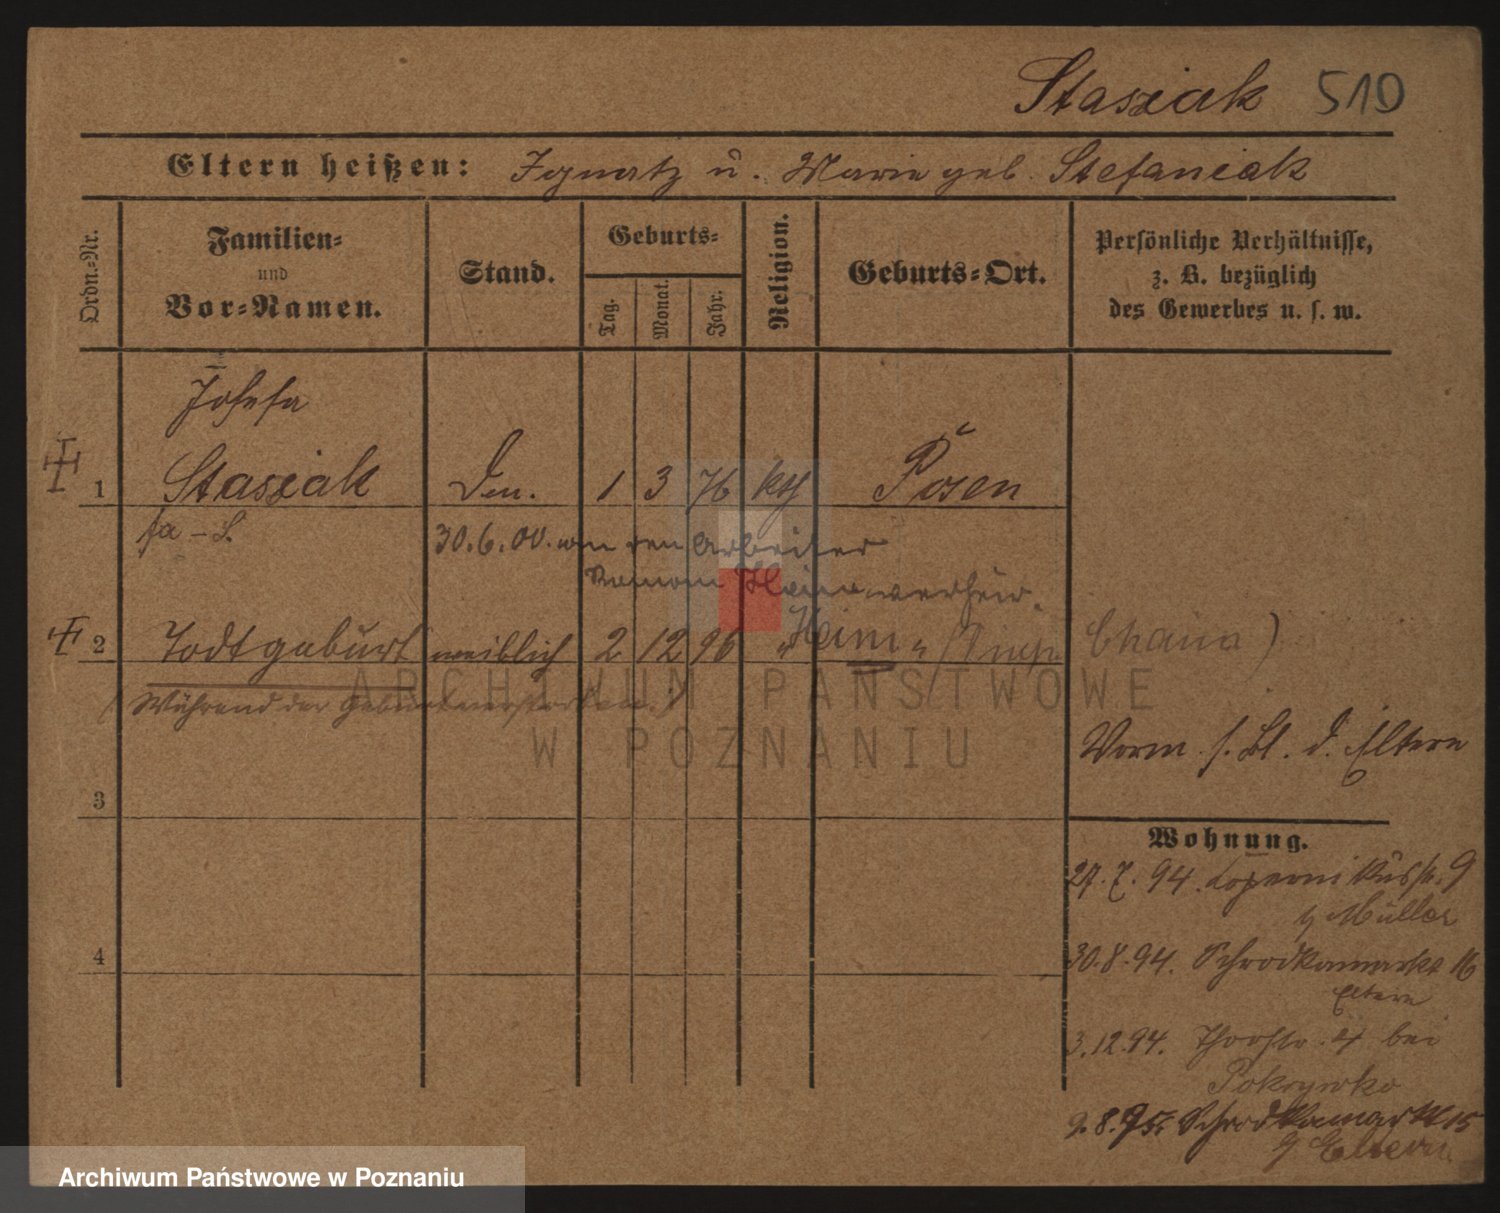 Stasziak 510
Eltern heißen: Ignatz u. Marie geb. Stefaniak
Ordn.-Nr.
Familien-
und
Vor-Namen.
Stand.
Geburts-
Tag.
Monat.
Jahr.
Religion.
Geburts-Ort.
Persönliche Verhältnisse,
z. B. bezüglich
des Gewerbes u. s. w.
Josefa
1 Stasziak 1 3 76 kth Posen
30.6.00. an den Arbeiter
verheir.
2 Todtgeburt weiblich 2 12 96 "Heim" Chaim)
(Während der Geburt verstorben.)
ARCHIWUM PAŃSTWOWE
W POZNANIU
Vorm. s. Bl. d. Eltern
3
Wohnung.
27.7.94. Kopernikusstr. 9
b/ Müller
4
30.8.94. Schrodkamarkt 16
Eltern
3.12.94. Thorstr. 4 bei
Pokrywka
9.8.95. Schrodkamarkt 15
b/ Eltern
Archiwum Państwowe w Poznaniu